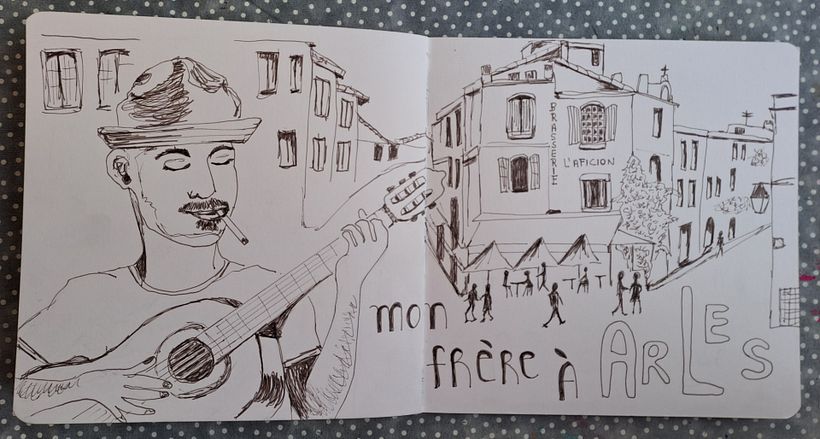 BRASSERIE
L'AFICION
mon
frère à ARLES